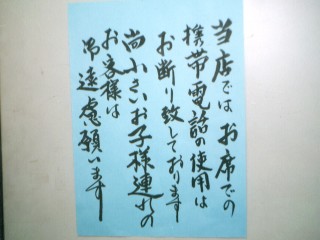 当店ではお席での
携帯電話の使用は
お断り致しております
尚小さいお子様連れの
お客様は
ご遠慮願います